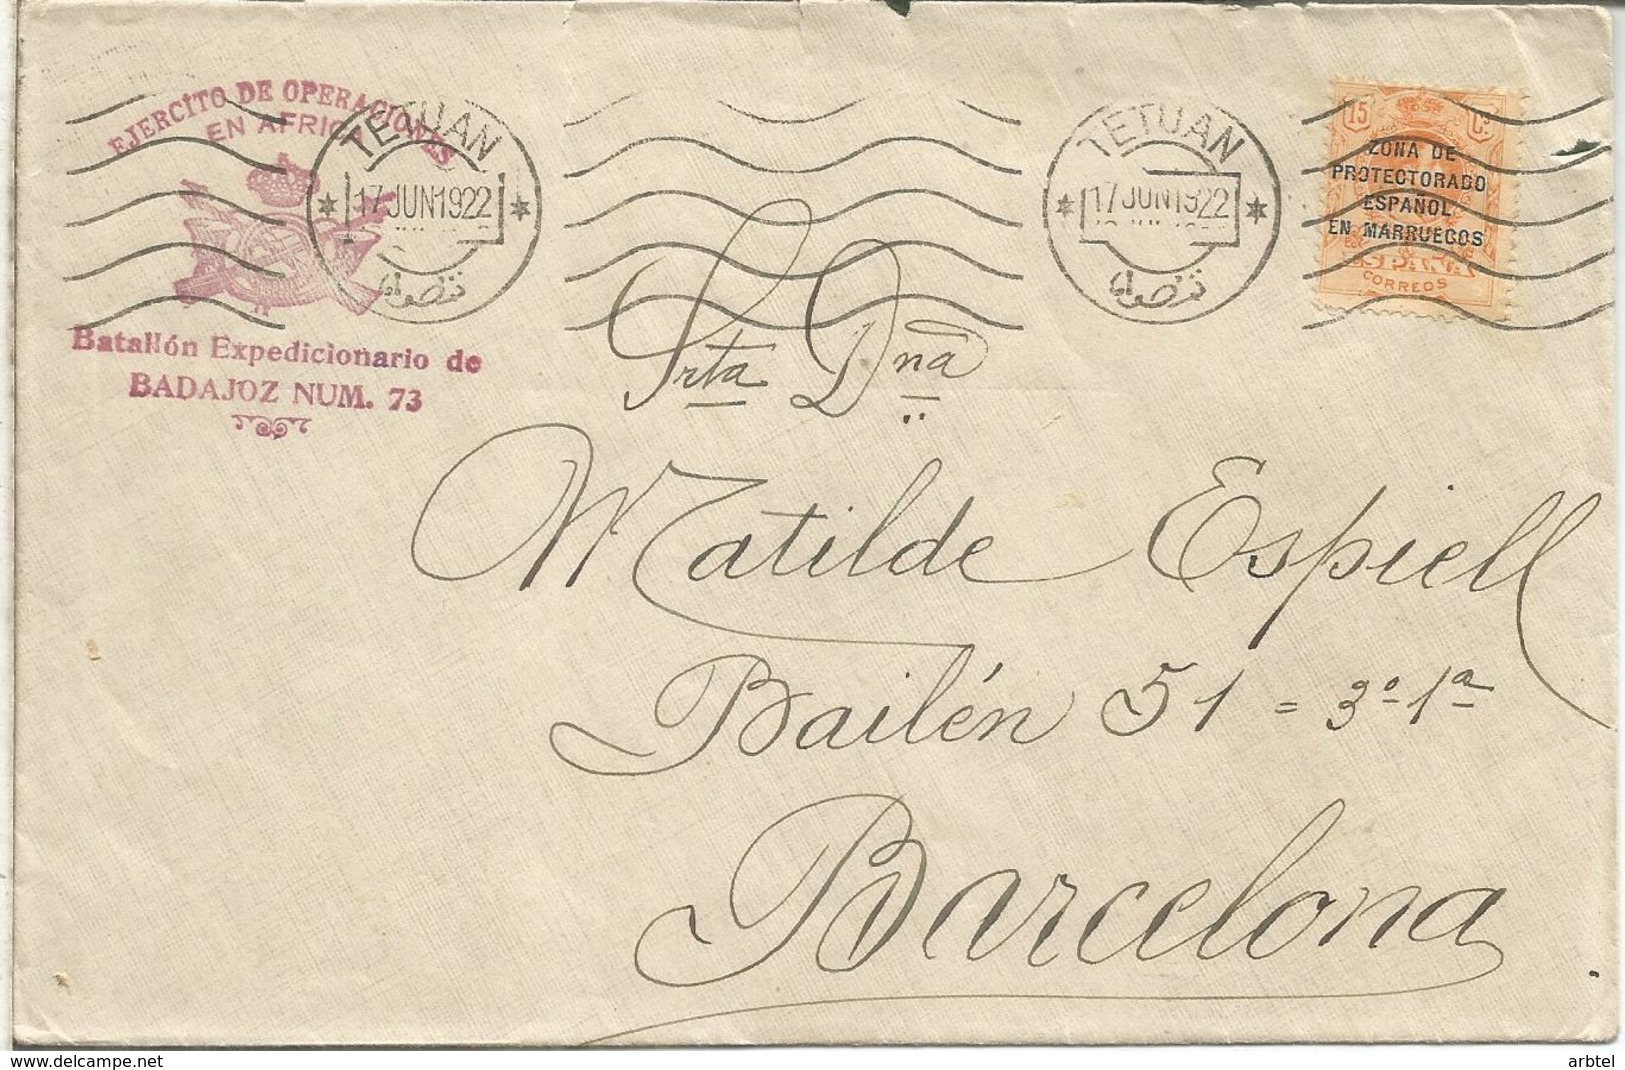 EJERCITO DE OPERACIONES
EN AFRICA
Batallón Expedicionario de
BADAJOZ NUM. 73
TETUAN
17 JUN 1922
TETUAN
17 JUN 1922
15 Cs
ZONA DE
PROTECTORADO
ESPAÑOL
EN MARRUECOS
ESPAÑA
CORREOS
Srta Dna
Matilde Espiell
Bailén 51 = 3º 1ª
Barcelona
www.delcampe.net
arbtel